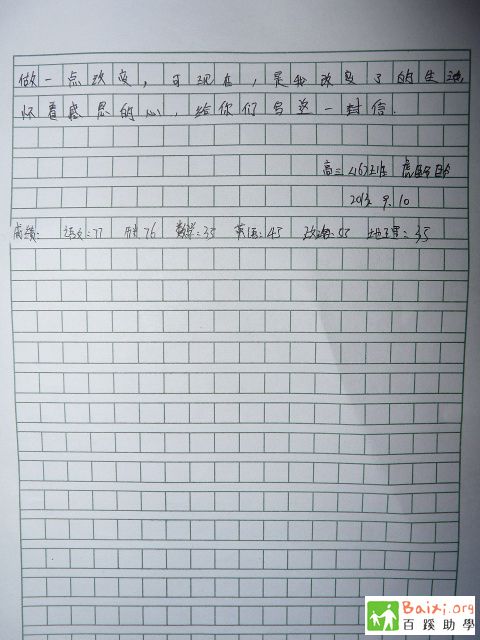 做一点改变，可现在，是你改变了的生活，
怀着感恩的心，给你们写这一封信.
高三 467班
2013. 9. 10
成绩: 语文:77 历史76 数学:35 英语:45 政治:55 地理:35
Baixi.org
百蹊助學